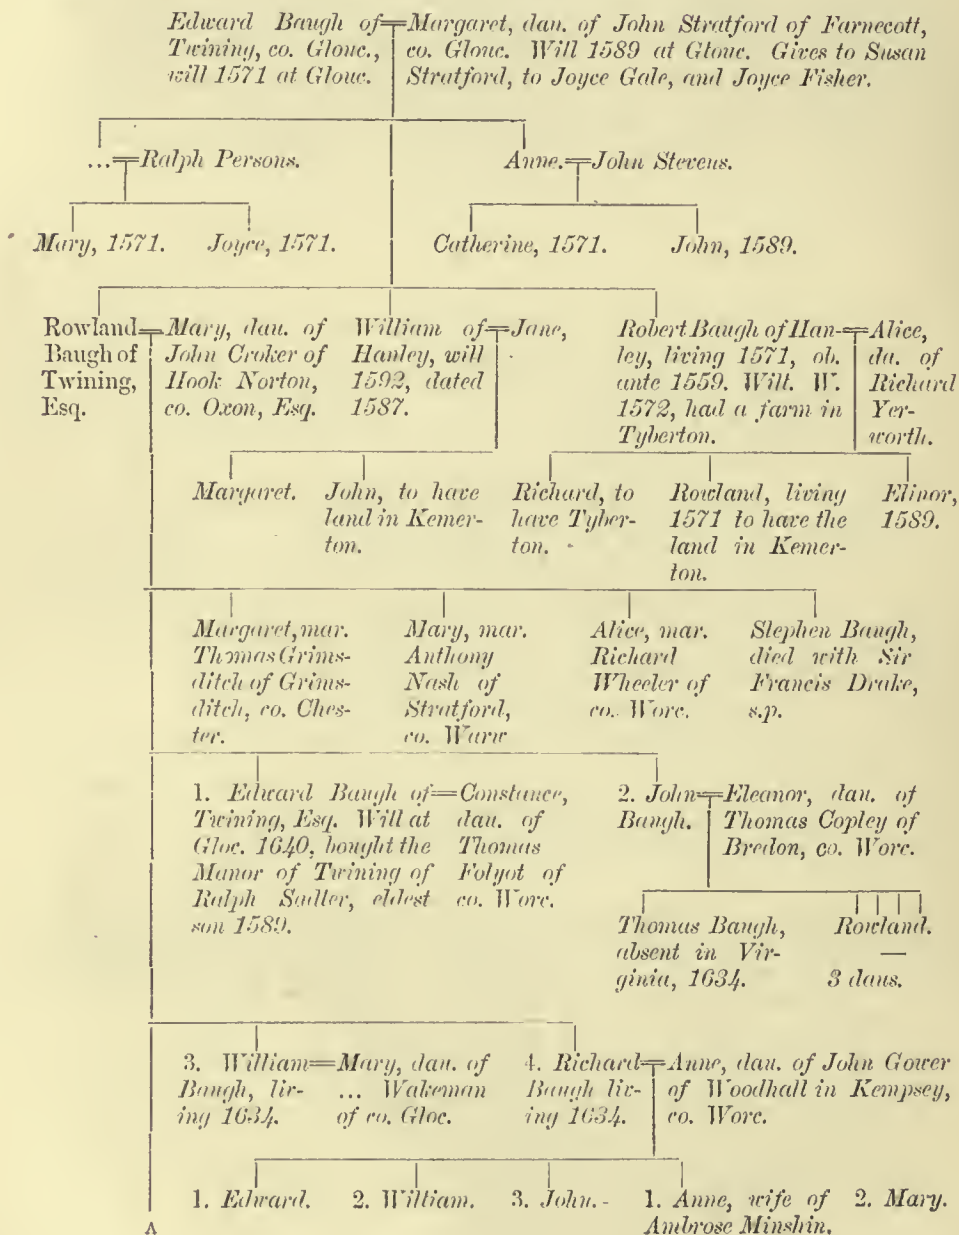 Edward Baugh of Twining, co. Glouc., will 1571 at Glouc.
Margaret, dau. of John Stratford of Farnecott,
co. Glouc. Will 1589 at Glouc. Gives to Susan
Stratford, to Joyce Gale, and Joyce Fisher.
... Ralph Persons.
Anne. John Stevens.
Mary, 1571.
Joyce, 1571.
Catherine, 1571.
John, 1589.
Rowland
Baugh of
Twining,
Esq.
Mary, dau. of
John Croker of
Hook Norton,
co. Oxon, Esq.
William of
Hanley, will
1592, dated
1587.
Jane,
Robert Baugh of Han-
ley, living 1571, ob.
ante 1559. Wilt. W.
1572, had a farm in
Tyberton.
Alice,
da. of
Richard
Yer-
worth.
Margaret.
John, to have
land in Kemer-
ton.
Richard, to
have Tyber-
ton.
Rowland, living
1571 to have the
land in Kemer-
ton.
Elinor,
1589.
Margaret, mar.
Thomas Grims-
ditch of Grims-
ditch, co. Ches-
ter.
Mary, mar.
Anthony
Nash of
Stratford,
co. Warw
Alice, mar.
Richard
Wheeler of
co. Worc.
Stephen Baugh,
died with Sir
Francis Drake,
s.p.
1. Edward Baugh of
Twining, Esq. Will at
Gloc. 1640, bought the
Manor of Twining of
Ralph Sadler, eldest
son 1589.
Constance,
dau. of
Thomas
Folyot of
co. Worc.
2. John
Baugh.
Eleanor, dau. of
Thomas Copley of
Bredon, co. Worc.
Thomas Baugh,
absent in Vir-
ginia, 1634.
Rowland.
—
3 daus.
3. William
Baugh, liv-
ing 1634.
Mary, dau. of
... Wakeman
of co. Gloc.
4. Richard
Baugh liv-
ing 1634.
Anne, dau. of John Gower
of Woodhall in Kempsey,
co. Worc.
1. Edward.
2. William.
3. John.
1. Anne, wife of
Ambrose Minshin.
2. Mary.
A